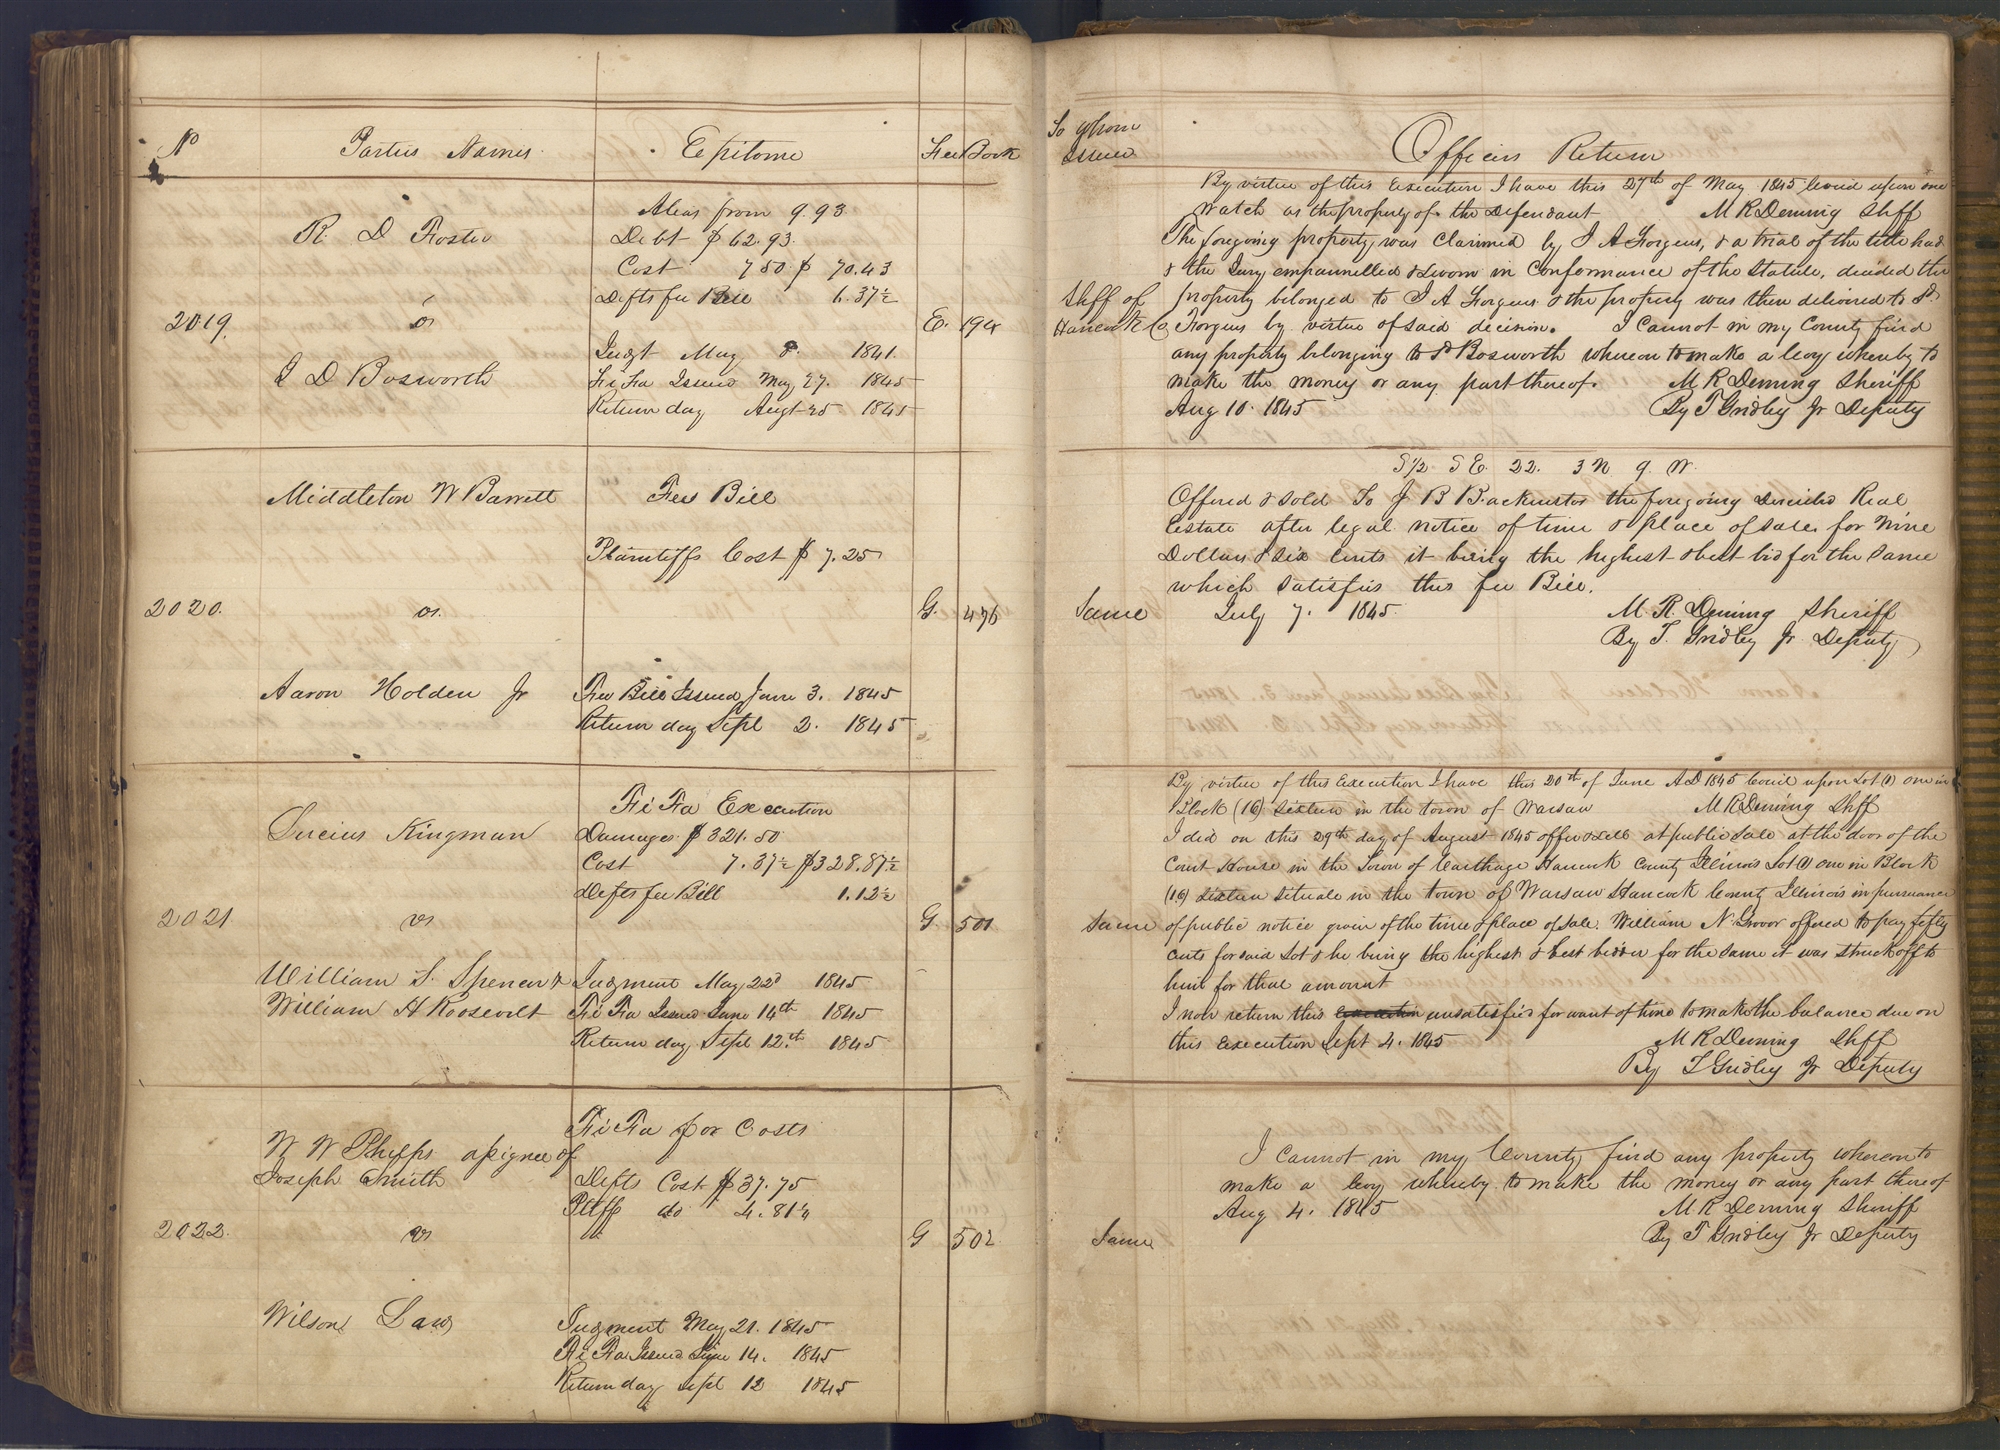 No
Parties Names
Epitome
Fee Book
R. D Foster
vs
2019.
I D Bosworth
Alias from 9.93
Debt $62.93.
Cost 7 50 $ 70.43
Defts fee Bill 6.37½
Judgt May 1841.
Fi Fa Issued May 27. 1845
Return day Augt 25 1845
E. 194
Middleton W Barrett
2020. vs.
Aaron Holden Jr
Fee Bill
Plaintiffs Cost $ 7.25
Fee Bill Issued June 3. 1845
Return day Sept 2. 1845
G. 476
Lucius Kingman
2021. vs
William S. Spencer &
William H Roosevelt
Fi Fa Execution
Damages $ 321.50
Cost 7.37½ $328.87½
Defts fee Bill 1.12½
Judgment May 22d 1845
Fi Fa Issued June 14th 1845
Return day Sept 12th 1845
G. 501
W W Phelps assignee of
Joseph Smith
2022. vs
Wilson Law
Fi Fa for Costs
Defts Cost $ 37.75
Plffs do 4.81¼
Judgment May 21. 1845
Fi Fa Issued June 14. 1845
Return day Sept 12 1845
G 502
To Whom
Issued
Officers Return
By virtue of this Execution I have this 27th of May 1845 levied upon one
Watch as the property of the Defendant M R Deming Shff
The foregoing property was Claimed by I A Forgeus, & a trial of the title had
& the Jury empannelled & sworn in Conformance of the Statute, decided the
Shff of
Hancock Co
property belonged to I A Forgeus & the property was then delivered to sd
Forgeus by virtue of said decision. I Cannot in my County find
any property belonging to sd Bosworth whereon to make a levy whereby to
make the money or any part thereof. M R Deming Sheriff
Aug 10. 1845 By T Gridley Jr Deputy
S½ SE. 22. 3 N 9. W.
Offered & sold To J B Backenstos the foregoing Described Real
Estate after legal notice of time & place of sale. for Nine
Dollars & six Cents it being the highest & best bid for the same
which satisfies this fee Bill.
Same July 7. 1845. M. R. Deming Sheriff
By T. Gridley Jr Deputy
By virtue of this Execution I have this 20th of June AD 1845 levied upon Lot (1) one in
Block (16) sixteen in the town of Warsaw M R Deming Shff
I did on this 29th day of August 1845 offer & sell at public sale at the door of the
Court House in the Town of Carthage Hancock County Illinois Lot (1) one in Block
(16) sixteen situate in the town of Warsaw Hancock County Illinois in pursuance
Same of public notice given of the time & place of sale. William N. Grover offered to pay fifty
cents for said Lot & he being the highest & best bidder for the same it was struck off to
him for that amount
I now return this execution unsatisfied for want of time to make the balance due on
this Execution Sept 4. 1845 M R Deming Shff
By T Gridley Jr Deputy
I Cannot in my County find any property whereon to
make a levy whereby to make the money or any part thereof
Aug 4. 1845 M R Deming Sheriff
Same By T Gridley Jr Deputy